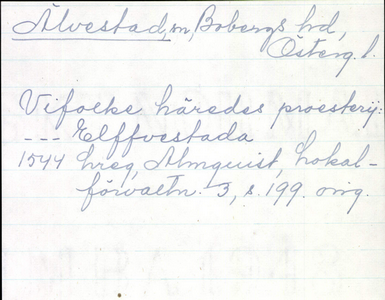 Älvestad, sn, Bobergs hd,
Österg. l.
Vifolke häredes proesterij:
--- Elffvestada
1544 hreg, Almquist, Lokal-
förvaltn. 3, s. 199. orig.